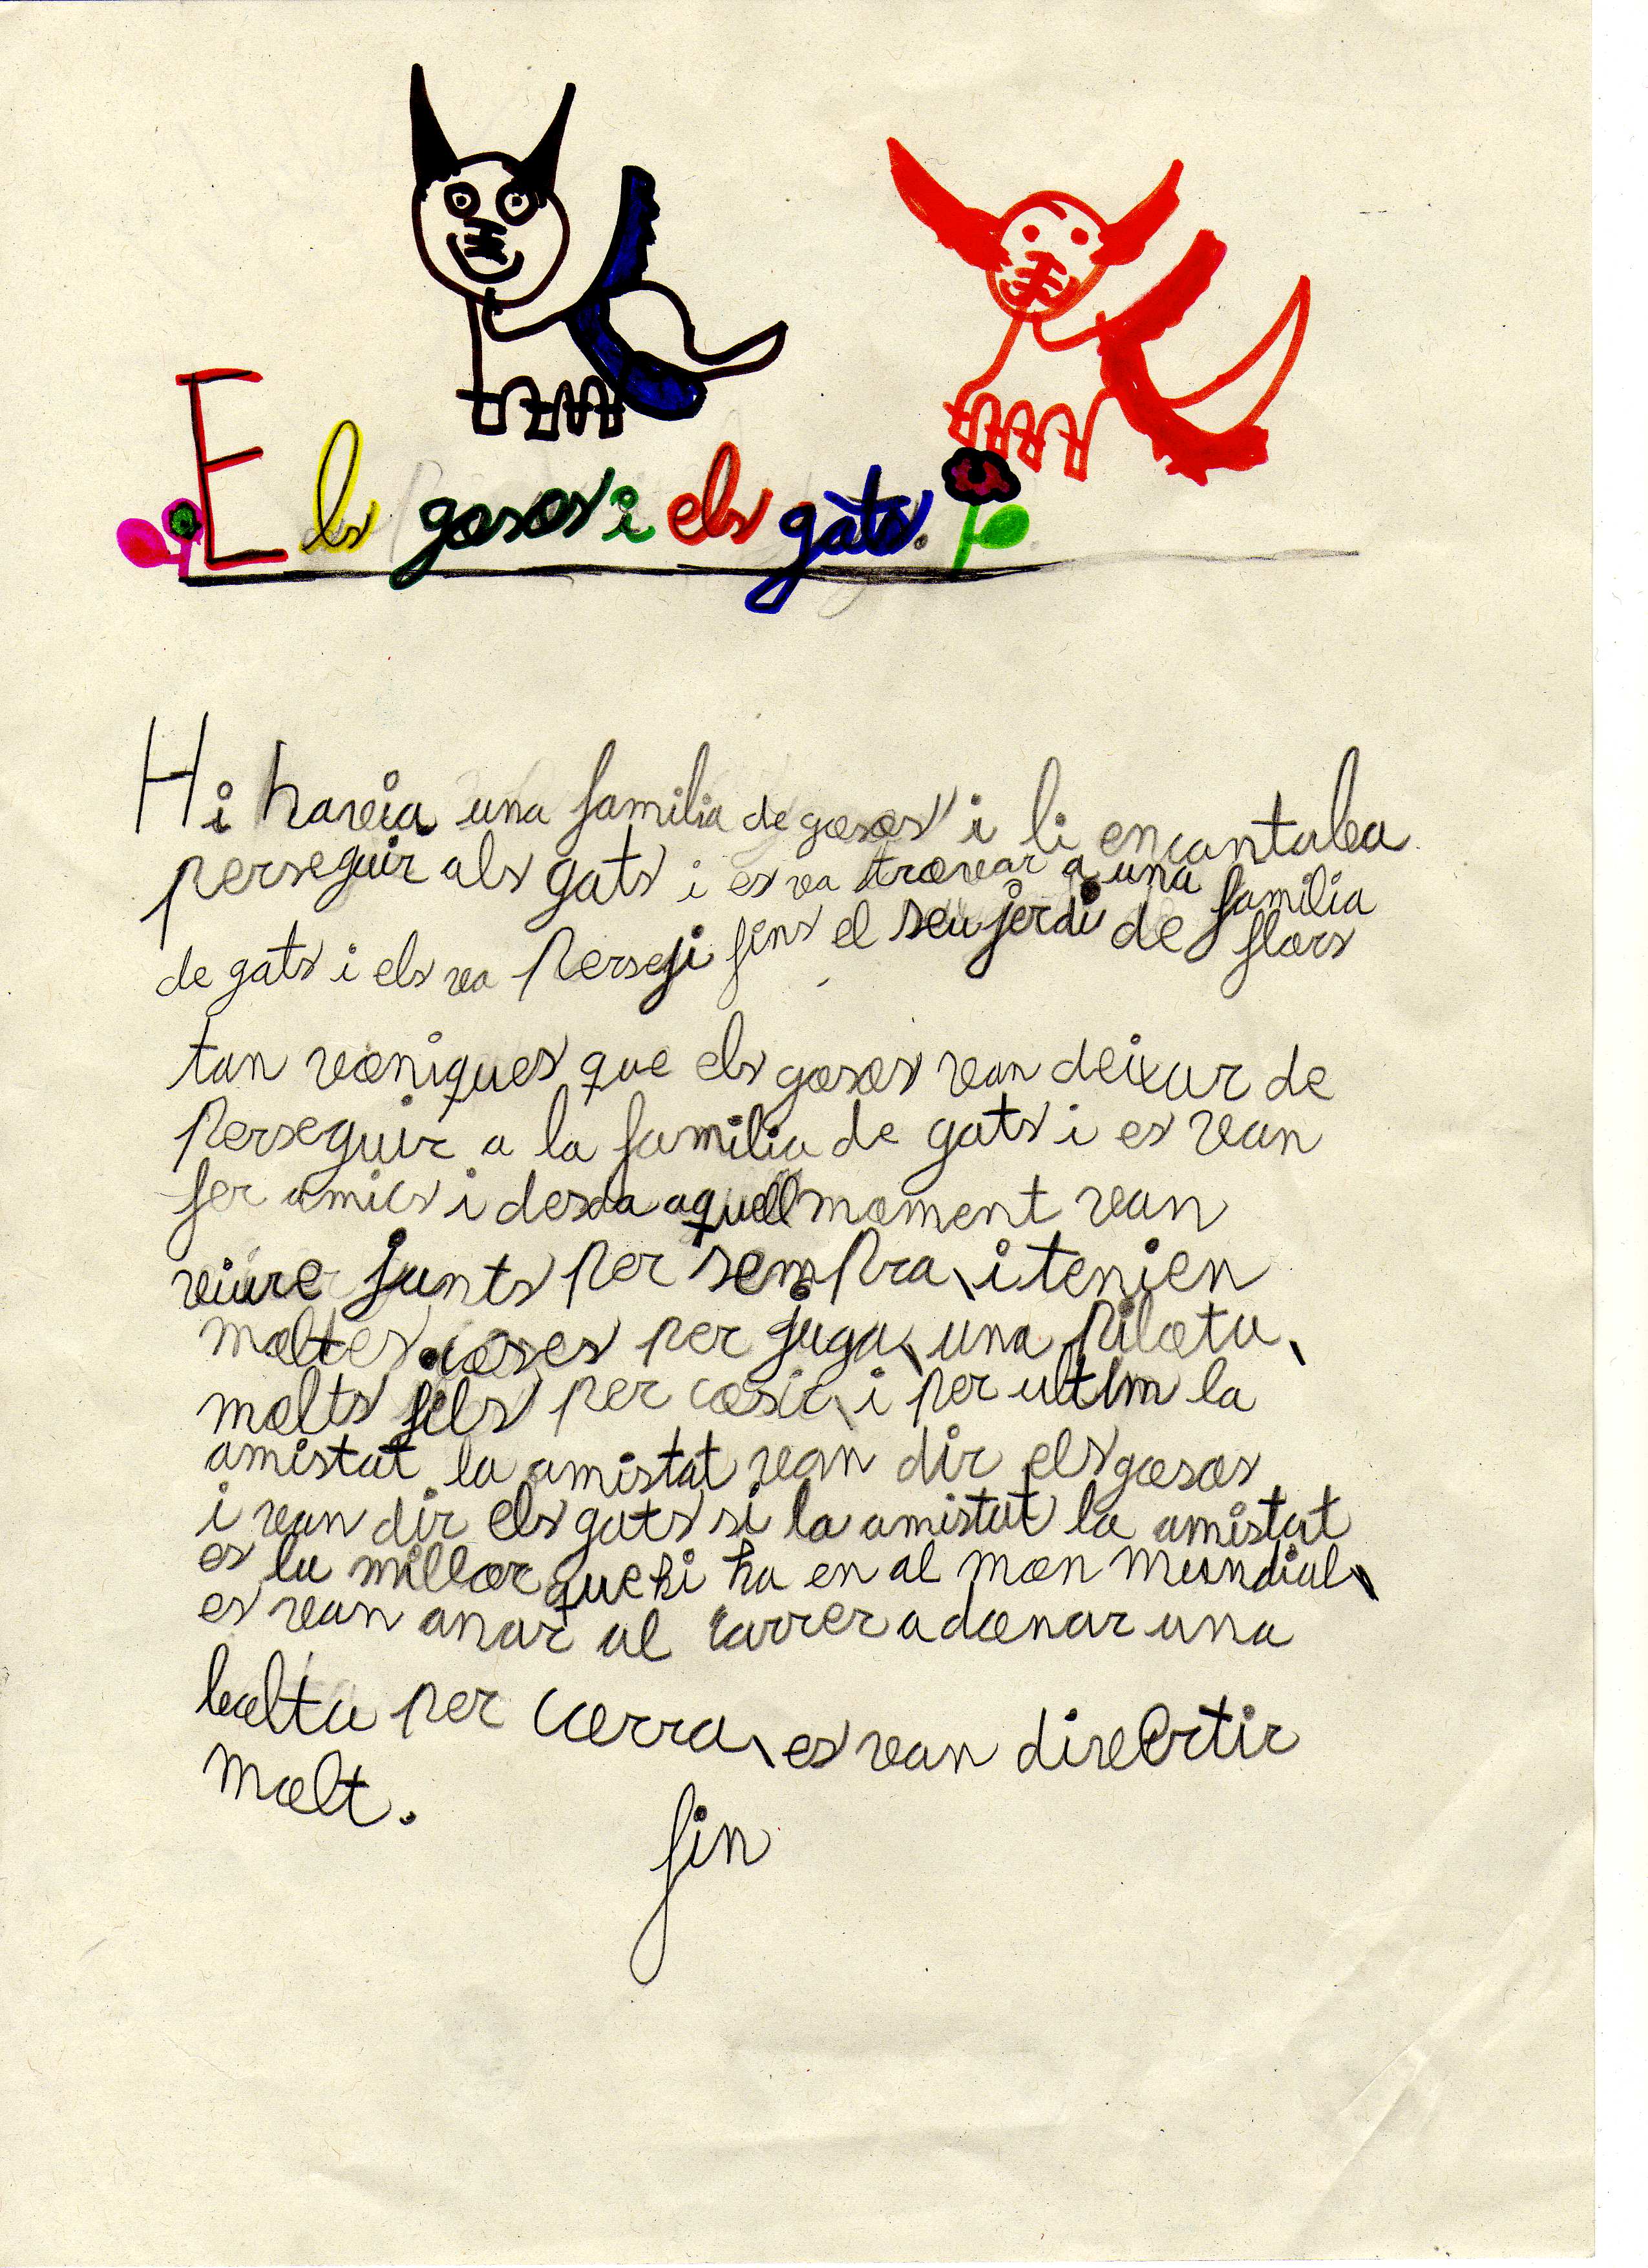 Els gosos i els gats.
Hi havia una familia de gosos i li encantaba
perseguir als gats i es va trovar a una familia
de gats i els va perseji fins el seu jerdi de flors
tan voniques que els gosos van deixar de
perseguir a la familia de gats i es van
fer amics i desda aquell moment van
viure junts per sempra, i tenien
moltes coses per juga, una pilota,
molts fils per cosir, i per ultim la
amistat la amistat van dir els gosos
i van dir els gats si la amistat la amistat
es la millor que hi ha en al mon mundial,
es van anar al carrer a donar una
bolta per corra, es van divertir
molt.
fin